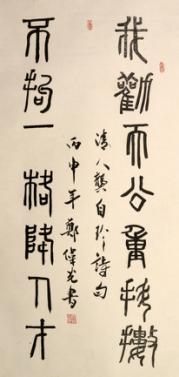 我勸天公重抖擻
不拘一格降人才
清人龔自珍詩句
丙申年鄭偉光書